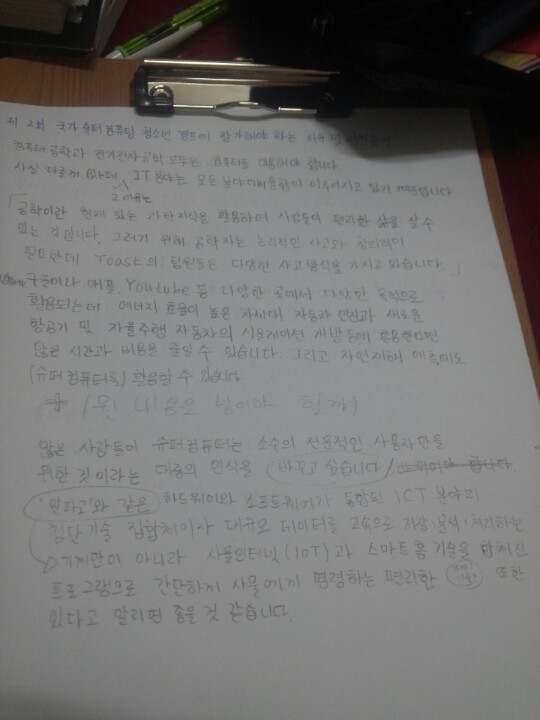 제 2회 국가 슈퍼컴퓨팅 청소년 캠프에 참가해야 하는 이유
컴퓨터 공학과 전기전자공학 모두는 컴퓨터를 이용해야 합니다.
사실 다르게 IT 분야는 모든 분야의 이루어지고 있기 때문입니다
그 이유는
「공학이란 현재 있는 과학지식을 활용하여 사람들이 편리한 삶을 살 수
있는 것입니다. 그러기 위해 공학자는 논리적인 사고와 창의력이
필요한데 Toast의 팀원들은 다양한 사고방식을 가지고 있습니다.」
구글이나 애플, Youtube 등 다양한 곳에서 다양한 목적으로
활용되는데 에너지 효율이 높은 차세대 자동차 엔진과 새로운
항공기 및 자율주행 자동차의 시뮬레이션 개발등에 활용한다면
많은 시간과 비용을 줄일 수 있습니다. 그리고 자연재해 예측에도
(슈퍼컴퓨터를) 활용할 수 있습니다
+ (뭔 내용을 넣어야 할까)
많은 사람들이 슈퍼컴퓨터는 소수의 전문적인 사용자만을
위한 것이라는 대중의 인식을 바꾸고 싶습니다
'알파고'와 같은 하드웨어와 소프트웨어가 통합된 ICT 분야의
첨단기술 집합체이자 대규모 데이터를 고속으로 저장·분석·처리하는
기계만이 아니라 사물인터넷(IoT)과 스마트홈 기술을 합쳐진
프로그램으로 간단하게 사물에게 명령하는 편리한 또한
있다고 알리면 좋을 것 같습니다.